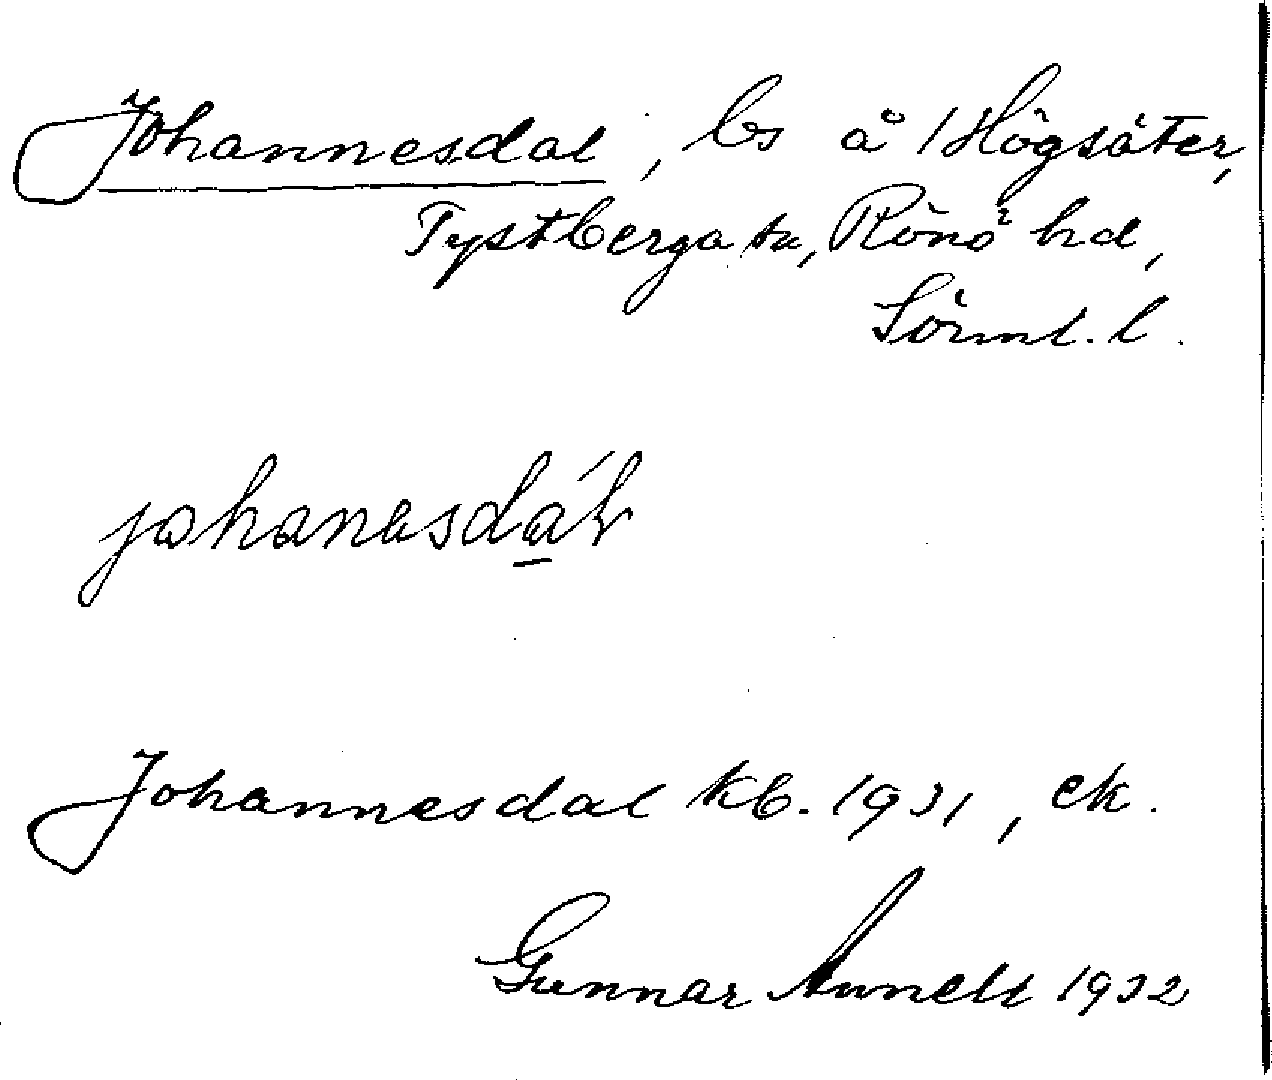 Johannesdal, ls å 1 Högsäter,
Tystberga sn, Rönö hd,
Sörml. l.
johanesdáɫ
Johannesdal kb. 1931, ek.
Gunnar 1932